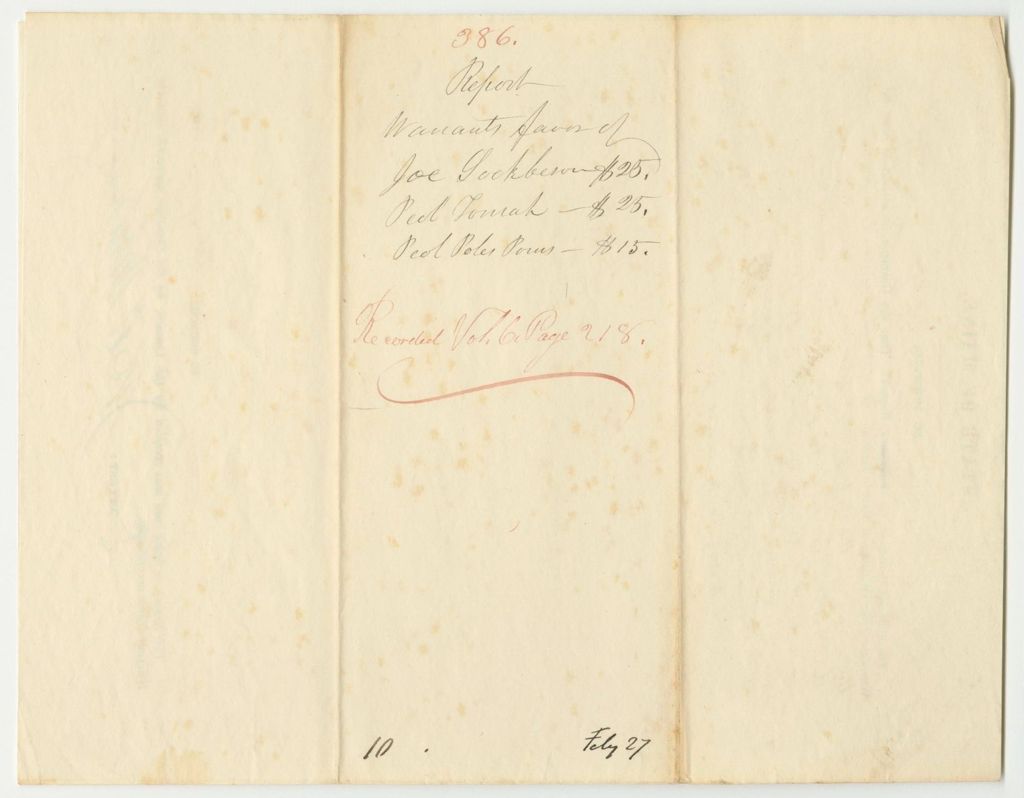 386.
Report
Warrants favor of
Joe Sockbeson $25.
Peol Tomah — $25.
Peol Poles Porus — $15.
Recorded Vol. 6. Page 218.
10 . Feby 27